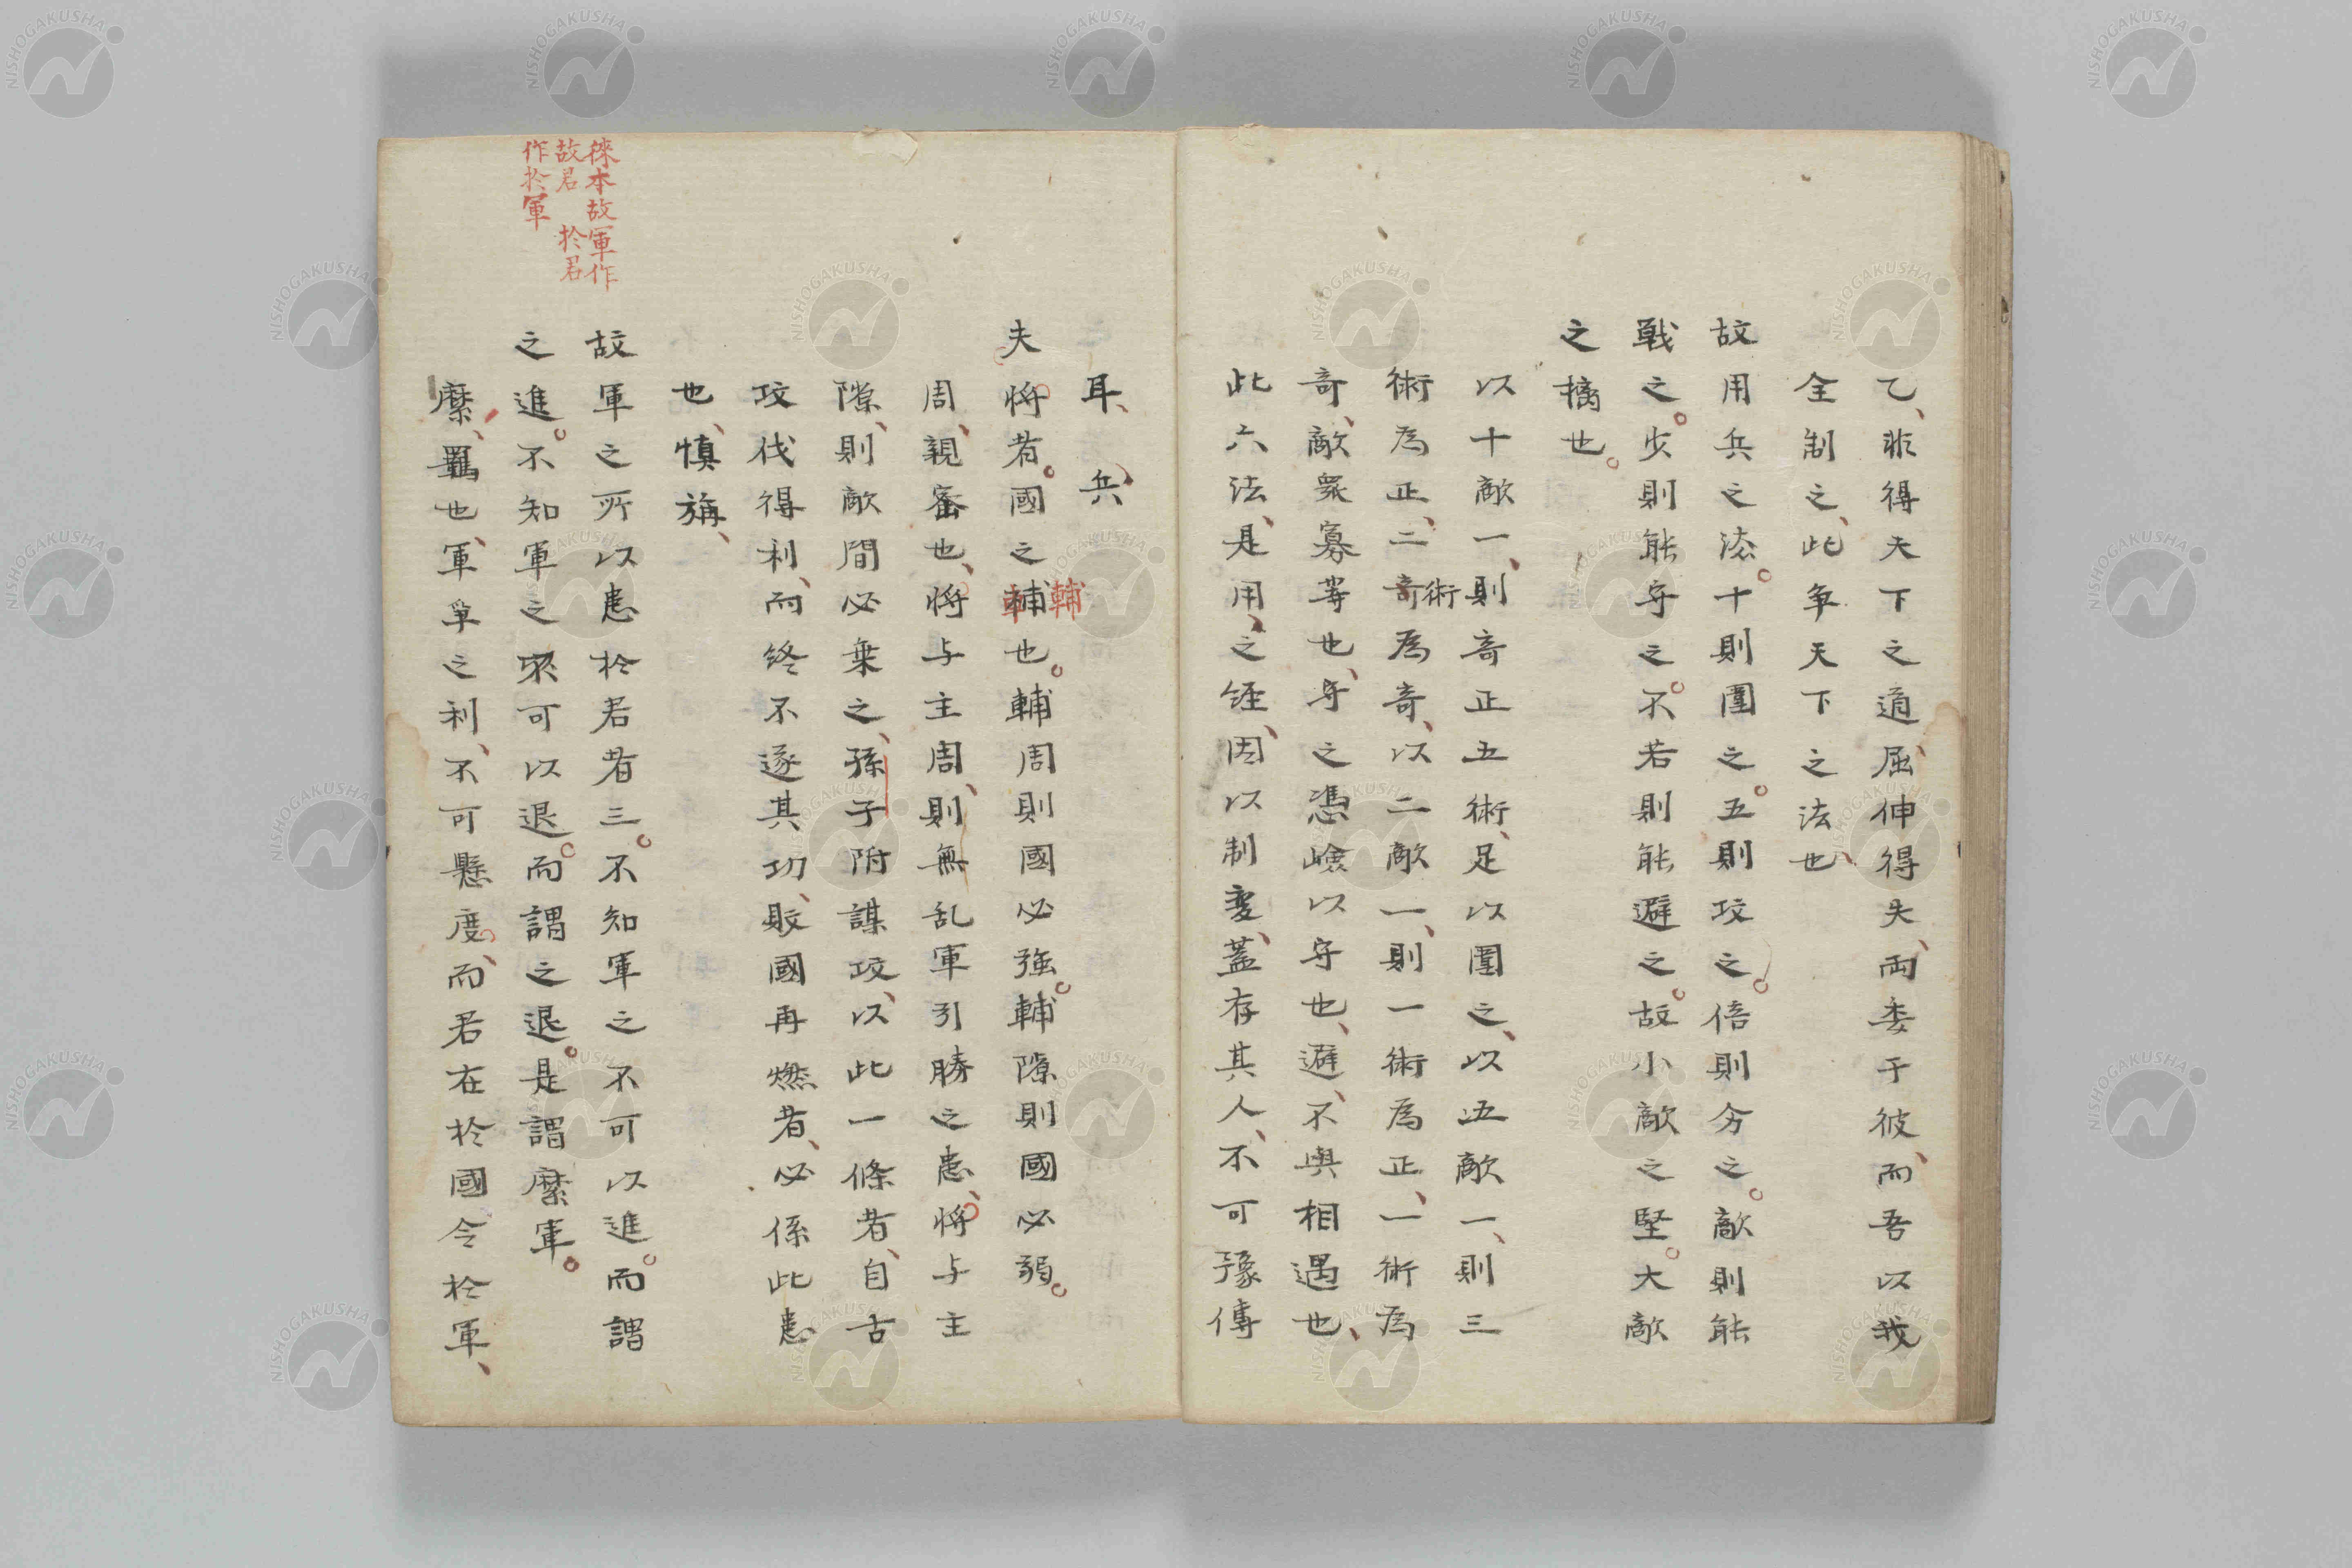 乙、非得天下之道、屈伸得失、両委于彼、而吾以我
全制之、此争天下之法也、
故用兵之法。十則圍之。五則攻之。倍則分之。敵則能
戦之。少則能守之。不若則能避之。故小敵之堅。大敵
之擒也。
以十敵一、則奇正五術、足以圍之、以五敵一、則三
術為正、二術為奇、以二敵一、則一術為正、一術為
奇、敵衆寡等也、守之憑嶮以守也、避、不與相遇也、
此六法、是用之経、因以制変、蓋存其人、不可豫傳
耳、兵
夫将者。國之輔也。輔周則國必強。輔隙則國必弱。
輔
周、親密也、将与主周、則無乱軍引勝之患、将与主
隙、則敵間必乗之、孫子附謀攻、以此一條者、自古
攻伐得利、而終不遂其功、敗國再燃者、必係此患
也、慎旃、
徠本故軍作
故君 於君
作於軍
故軍之所以患於君者三。不知軍之不可以進。而謂
之進。不知軍之不可以退。而謂之退。是謂縻軍。
縻、羈也、軍争之利、不可懸度、而君在於國令於軍、
NISHOGAKUSHA